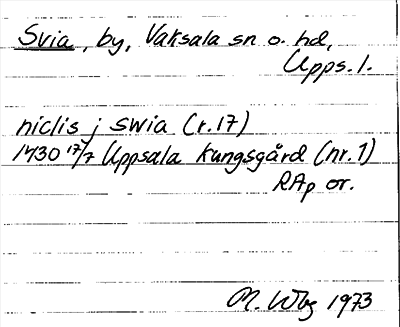 Svia, by, Vaksala sn o. hd,
Upps. l.
niclis j swia (r. 17)
1430 17/7 Uppsala kungsgård (nr. 1)
RAp or.
M. Wbg 1973